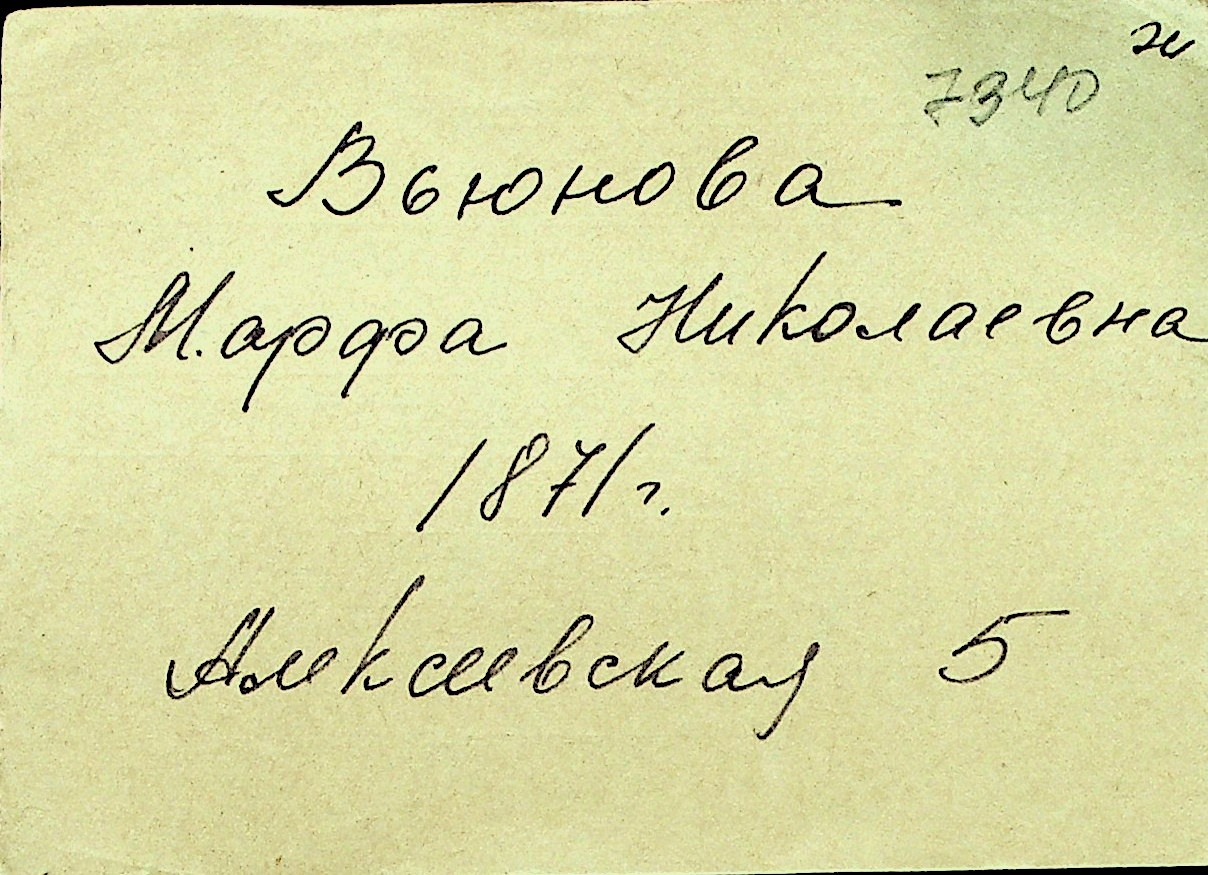 ж
7340
Вьюнова
Марфа Николаевна
1871г.
Алексеевская 5